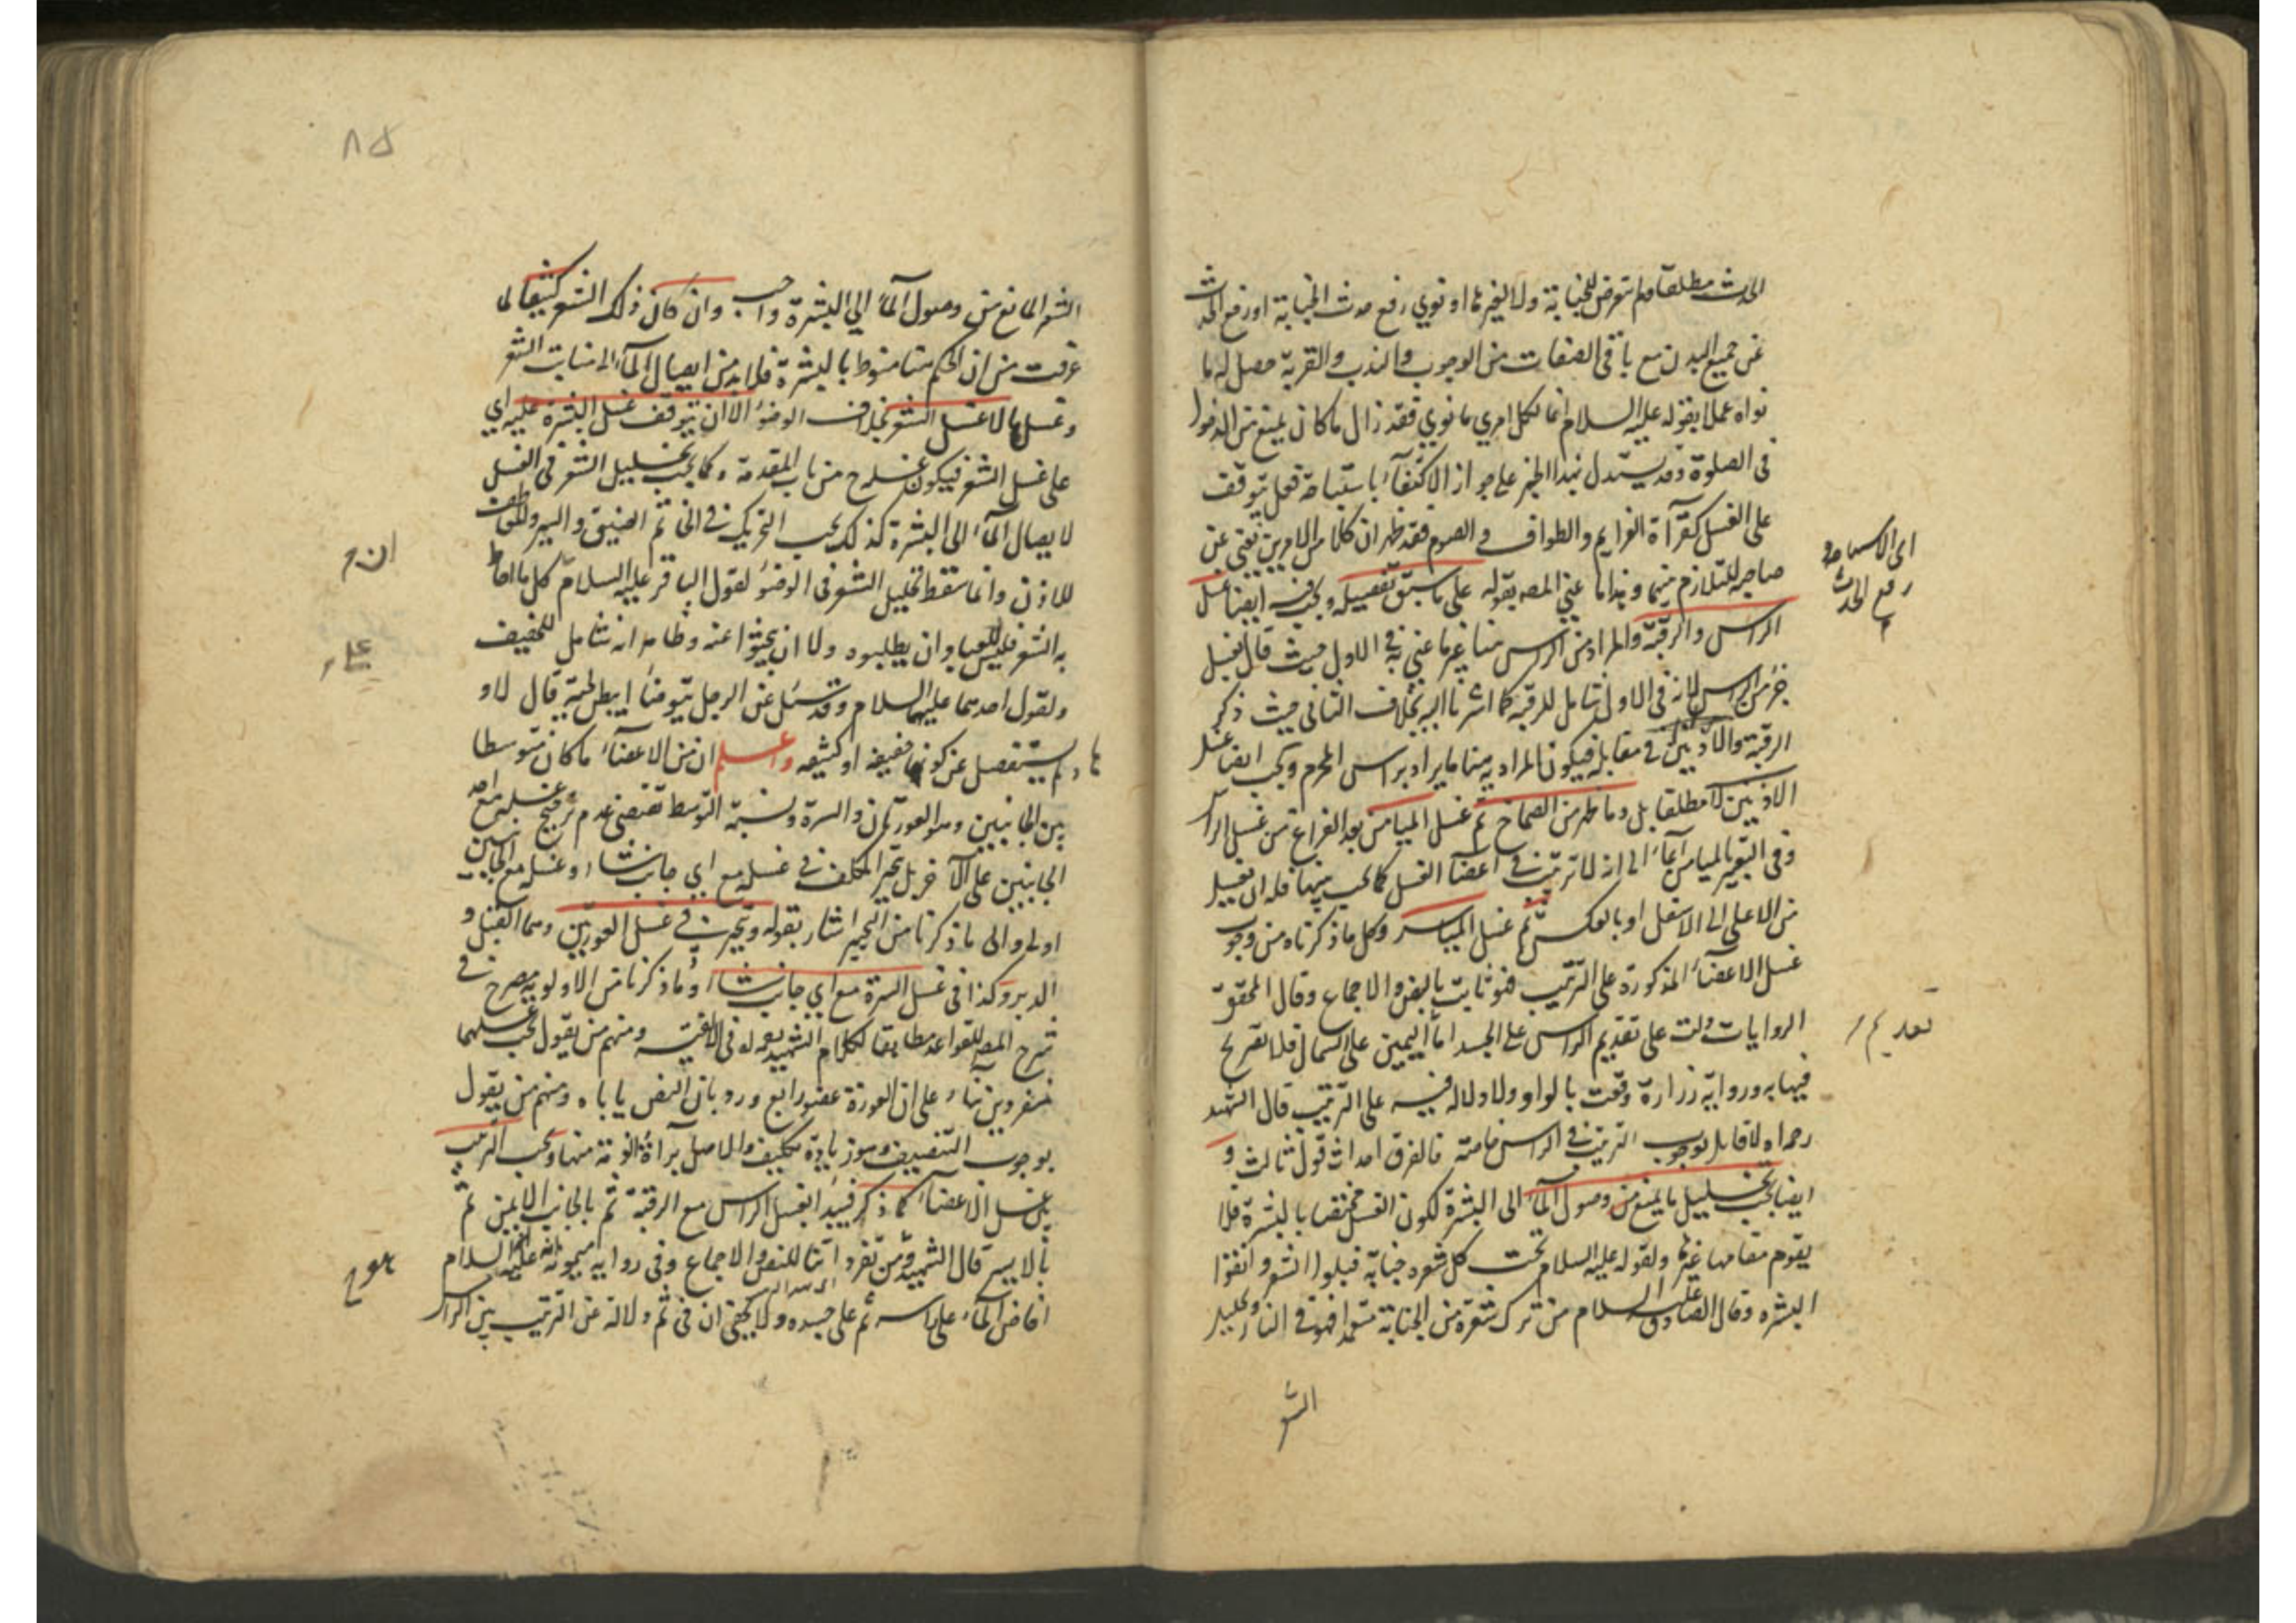 الحدث مطلقا ولم يتعرض للجنابة ولا لغيرها او نوي رفع حدث الجنابة او رفع الحدث
عن جميع البدن مع باقى الصفات من الوجوب والندب والقربة حصل له ما
نواه عملا بقوله عليه السلام انما لكل امرئ ما نوي فقد زال ما كان يمنع من الدخول
فى الصلوة وقد يستدل بهذا الخبر على جواز الاكتفآء باستباحة فعل يتوقف
على الغسل كقرآءة العزايم والطواف و الصوم فقد ظهر ان كلا من الامرين يغنى عن
صاحبه للتلازم بينهما وهذا ما عني المصه بقوله على ما سبق تفصيله ويجب فيه ايضا غسل
الراس والرقبة والمراد من الراس هنا غير ما عني به فى الاول حيث قال بغسل
جزء من الراس لانه فى الاول شامل للرقبة كما اشرنا اليه بخلاف الثانى حيث ذكر
الرقبة والاذنين فى مقابله فيكون المراد به هنا ما يراد براس المحرم ويجب ايضا غسل
الاذنين لا مطلقا بل وما ظهر من الصماخ ثم غسل الميامن بعد الفراغ من غسل الراس
وفى التعبير بالميامن ايمآء الى انه لا ترتيب فى اعضا الغسل كما يجب بينها فله ان يغسل
من الاعلى الى الاسفل او بالعكس ثم غسل المياسر وكل ما ذكرناه من وجوب
غسل الاعضآء المذكورة على الترتيب فهو ثابت بالنص والاجماع وقال المحقق
الروايات دلت على تقديم الراس على الجسد اما اليمين على الشمال فلا تصريح
فيها به ورواية زرارة وقعت بالواو ولا دلاله فيه على الترتيب قال الشهيد
رحمه الله لا قايل بوجوب الترتيب فى الراس خاصة فالفرق احداث قول ثالث و
ايضا يجب تخليل ما يمنع من وصول المآء الى البشرة لكون الغسل مختصا بالبشرة فلا
يقوم مقامها غيرها ولقوله عليه السلام تحت كل شعرة جنابة فبلوا الشعر وانقوا
البشره وقال الصادق عليه السلام من ترك شعرة من الجنابة متعمدا فهو فى النار وتخليل
الشعر
اى الاستباحة و
رفع الحدث
تقديم
٨٥
الشعر المانع من وصول المآء الى البشرة واجب وان كان ذلك الشعر كثيفا لما
عرفت من ان الحكم هنا منوط بالبشرة فلا بد من ايصال المآء الى منابت الشعر
وغسلها لا غسل الشعر بخلاف الوضوء الا ان يتوقف غسل البشرة عليه اي
على غسل الشعر فيكون غسله ح من باب المقدمة وكما يجب تخليل الشعر فى الغسل
لايصال المآء الى البشرة كذلك يجب التحريك فى الخاتم الضيق والسير
للاذن وانما سقط تخليل الشعر فى الوضوء لقول الباقر عليه السلام كل ما احاط
به الشعر فليس للعباد ان يطلبوه ولا ان يبحثوا عنه وظاهره انه شامل للخفيف
ولقول احدهما عليهما السلام وقد سئل عن الرجل يتوضأ ايبطن لحيته قال لا و
لم يستفصل عن كونها خفيفة او كثيفه واعلم ان من الاعضآء ما كان متوسطا
بين الجانبين وهو العورتان والسرة ونسبة التوسط تقتضى عدم ترجيح غسله مع احد
الجانبين على الآخر بل تخير المكلف فى غسله مع اي جانب شاء وغسله مع الجانبين
اولى والى ما ذكرنا من التخيير اشار بقوله ويتخير فى غسل العورتين وهما القبل و
الدبر وكذا فى غسل السرة مع اي جانب شاء وما ذكرنا من الاولوية مصرح فى
شرح المصه للقواعد مطابقا لكلام الشهيد فى الالفية ومنهم من يقول يجب غسلهما
منفردين بناء على ان العورة عضو رابع ورد بان النص ياباه ومنهم من يقول
بوجوب التنصيف وهو زيادة تكليف والحاصل برآءة الذمة منها ويجب الترتيب
بين غسل الاعضآء كما ذكر فيبدأ بغسل الراس مع الرقبة ثم بالجانب الايمن ثم
بالايسر قال الشهيد ومن تفرداتنا للنص والاجماع وفى رواية ميمونة انه عليه السلام
افاض المآء على راسه ثم على جسده ولا يخفى ان فى ثم دلالة عن الترتيب بين الراس